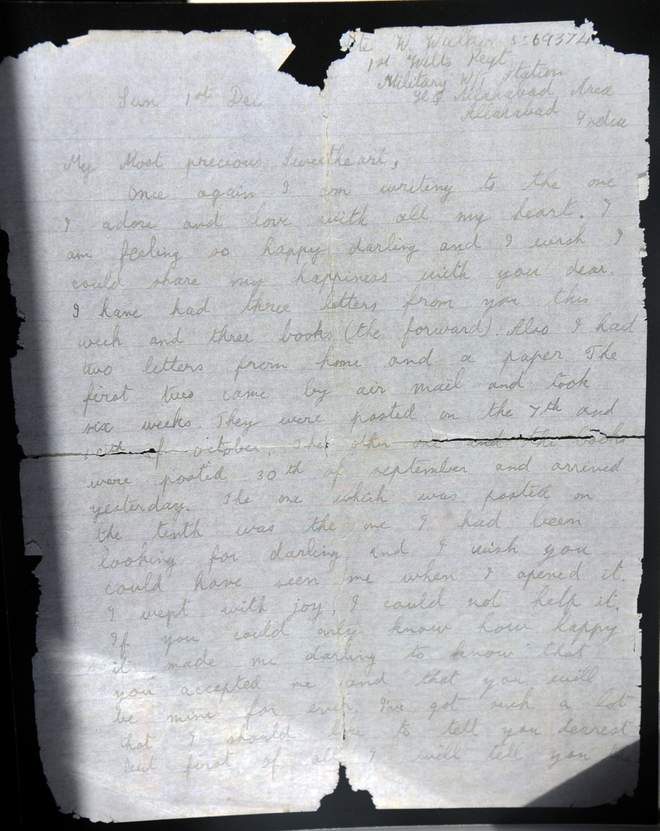 Pte W. Walker 5569374
1st Wilts Regt
Military W/T Station
HQ Allahabad Area
Allahabad
India
Sun 1st Dec
My Most precious Sweetheart,
Once again I am writing to the one
I adore and love with all my heart. I
am feeling so happy darling and I wish I
could share my happiness with you dear.
I have had three letters from you this
week and three books (the forward). Also I had
two letters from home and a paper. The
first two came by air mail and took
six weeks. They were posted on the 7th and
10th of October. The other one and the books
were posted 30th of september and arrived
yesterday. The one which was posted on
the tenth was the one I had been
looking for darling and I wish you
could have seen me when I opened it.
I wept with joy, I could not help it.
If you could only know how happy
it made me darling to know that
you accepted me and that you will
be mine for ever. I've got such a lot
that I should like to tell you dearest
but first of all I will tell you